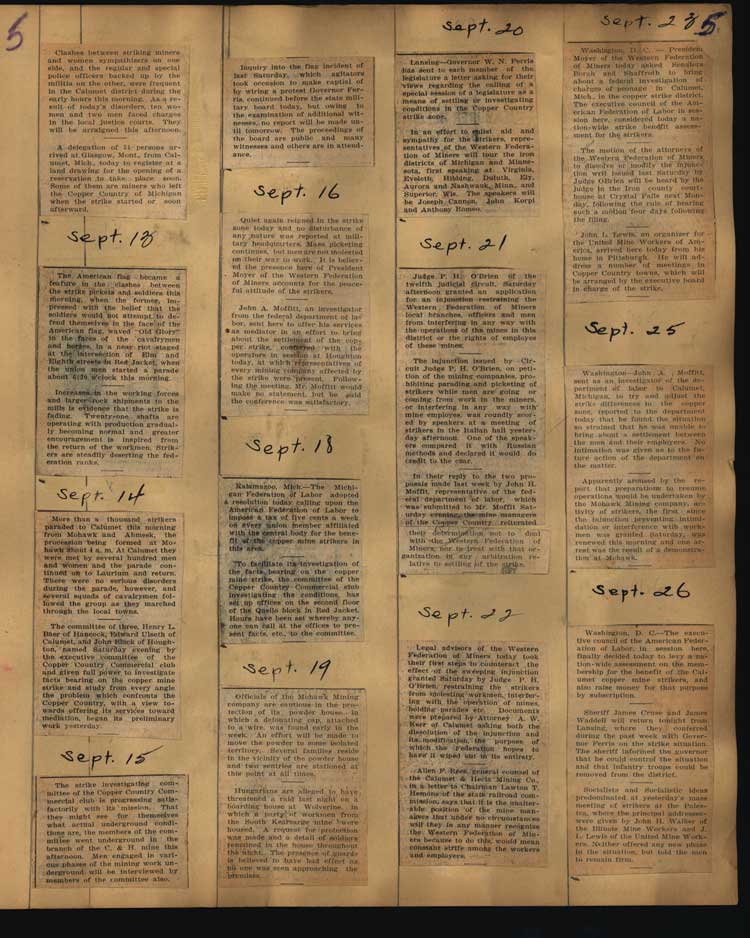 5
Clashes between striking miners
and women sympathizers on one
side, and the regular and special
police officers backed up by the
militia on the other, were frequent
in the Calumet district during the
early hours this morning. As a re-
sult of today's disorders, two wo-
men and two men faced charges
in the local justice courts. They
will be arraigned this afternoon.
A delegation of 11 persons ar-
rived at Glasgow, Mont., from Cal-
umet, Mich., today to register at a
land drawing for the opening of a
reservation to take place soon.
Some of them are miners who left
the Copper Country of Michigan
when the strike started or soon
afterward.
Sept. 13
The American flag became a
feature in the clashes between
the strike pickets and soldiers this
morning, when the former, im-
pressed with the belief that the
soldiers would not attempt to de-
fend themselves in the face of the
American flag, waved "Old Glory"
in the faces of the cavalrymen
and horses, in a near riot staged
at the intersection of Elm and
Eighth streets in Red Jacket, when
the union men started a parade
about 6:20 o'clock this morning.
Increases in the working forces
and larger rock shipments to the
mills is evidence that the strike is
fading. Twenty-one shafts are
operating with production gradual-
ly becoming normal and greater
encouragement is inspired from
the return of the workmen. Strik-
ers are steadily deserting the fed-
eration ranks.
Sept. 14
More than a thousand strikers
paraded to Calumet this morning
from Mohawk and Ahmeek, the
procession being formed at Mo-
hawk about 4 a. m. At Calumet they
were met by several hundred men
and women and the parade con-
tinued on to Laurium and return.
There were no serious disorders
during the parade, however, and
several squads of cavalrymen fol-
lowed the group as they marched
through the local towns.
The committee of three, Henry L.
Baer of Hancock, Edward Ulseth of
Calumet, and John Black of Hough-
ton, named Saturday evening by
the executive committee of the
Copper Country Commercial club
and given full power to investigate
facts bearing on the copper mine
strike and study from every angle
the problem which confronts the
Copper Country, with a view to-
wards offering its services toward
mediation, began its preliminary
work yesterday.
Sept. 15
The strike investigating com-
mittee of the Copper Country Com-
mercial club is progressing satis-
factorily with its mission. That
they might see for themselves
what actual underground condi-
tions are, the members of the com-
mittee went underground in the
branch of the C. & H. mine this
afternoon. Men engaged in vari-
ous phases of the mining work un-
derground will be interviewed by
members of the committee also.
Inquiry into the flag incident of
last Saturday, which agitators
took occasion to make capital of
by wiring a protest Governor Fer-
ris, continued before the state mili-
tary board today, but owing to
the examination of additional wit-
nesses, no report will be made un-
til tomorrow. The proceedings of
the board are public and many
witnesses and others are in attend-
ance.
Sept. 16
Quiet again reigned in the strike
zone today and no disturbance of
any nature was reported at mili-
tary headquarters. Mass picketing
continues, but men are not molested
on their way to work. It is believ-
ed the presence here of President
Moyer of the Western Federation
of Miners accounts for the peace-
ful attitude of the strikers.
John A. Moffitt, an investigator
from the federal department of la-
bor, sent here to offer his services
as mediator in an effort to bring
about the settlement of the cop-
per strike, conferred with the
operators in session at Houghton
today, at which representatives of
every mining company affected by
the strike were present. Follow-
ing the meeting, Mr. Moffitt would
make no statement, but he said
the conference was satisfactory.
Sept. 18
Kalamazoo, Mich.—The Michi-
gan Federation of Labor adopted
a resolution today calling upon the
American Federation of Labor to
impose a tax of five cents a week
on every union member affiliated
with the central body for the bene-
fit of the copper mine strikers in
this area.
To facilitate its investigation of
the facts bearing on the copper
mine strike, the committee of the
Copper Country Commercial club
investigating the conditions, has
set up offices on the second floor
of the Quello block in Red Jacket.
Hours have been set whereby any-
one can call at the offices to pre-
sent facts, etc., to the committee.
Sept. 19
Officials of the Mohawk Mining
company are cautious in the pro-
tection of its powder house in
which a detonating cap, attached
to a wire, was found early in the
week. An effort will be made to
move the powder to some isolated
territory. Several families reside
in the vicinity of the powder house
and two sentries are stationed at
this point at all times.
Hungarians are alleged to have
threatened a raid last night on a
boarding house at Wolverine, in
which a party of workmen from
the South Kearsarge mine were
housed. A request for protection
was made and a detail of soldiers
remained in the house throughout
the night. The presence of guards
is believed to have had effect as
no one was seen approaching the
premises.
Sept. 20
Lansing—Governor W. N. Ferris
has sent to each member of the
legislature a letter asking for their
views regarding the calling of a
special session of a legislature as a
means of settling or investigating
conditions in the Copper Country
strike zone.
In an effort to enlist aid and
sympathy for the strikers, repre-
sentatives of the Western Federa-
tion of Miners will tour the iron
districts of Michigan and Minne-
sota, first speaking at Virginia,
Eveleth, Hibbing, Duluth, Ely,
Aurora and Nashwauk, Minn., and
Superior, Wis. The speakers will
be Joseph Cannon, John Korpi
and Anthony
Sept. 21
Judge P. H. O'Brien of the
twelfth judicial circuit, Saturday
afternoon granted an application
for an injunction restraining the
Western Federation of Miners
local branches, officers and men
from interfering in any way with
the operations of the mines in this
district or the rights of employes
of these mines.
The injunction issued by Cir-
cuit Judge P. H. O'Brien, on peti-
tion of the mining companies, pro-
hibiting parading and picketing of
strikers while men are going or
coming from work in the miners,
or interfering in any way with
mine employes, was roundly scor-
ed by speakers at a meeting of
strikers in the Italian hall yester-
day afternoon. One of the speak-
ers compared it with Russian
methods and declared it would do
credit to the czar.
In their reply to the two pro-
posals made last week by John H.
Moffit, representative of the fed-
eral department of labor, which
was submitted to Mr. Moffit Sat-
urday evening, the mine managers
of the Copper Country reiterated
their determination not to deal
with the Western Federation of
Miners, nor to treat with that or-
ganization in any arbitration re-
lative to settling of the strike.
Sept. 22
Legal advisors of the Western
Federation of Miners today took
their first steps to counteract the
effect of the sweeping injunction
granted Saturday by Judge P. H.
O'Brien, restraining the strikers
from molesting workmen, interfer-
ing with the operation of mines,
holding parades etc. Documents
were prepared by Attorney A. W.
Kerr of Calumet asking both the
dissolution of the injunction and
its modification, the purpose of
which the Federation hopes to
have it wiped out in its entirety.
Allen F. Rees, general counsel of
the Calumet & Hecla Mining Co.,
in a letter to Chairman Lawton T.
Hemons of the state railroad com-
mission, says that it is the unalter-
able position of the mine man-
agers that under no circumstances
will they in any manner recognize
the Western Federation of Min-
ers because to do this, would mean
constant strife among the workers
and employers.
Sept. 23
5.
Washington, D. C. — President
Moyer of the Western Federation
of Miners today asked Senators
Borah and Shaffroth to bring
about a federal investigation of
charges of peonage in Calumet,
Mich., in the copper strike district.
The executive council of the Am-
erican Federation of Labor in ses-
sion here, considered today a na-
tion-wide strike benefit assess-
ment for the strikers.
The motion of the attorneys of
the Western Federation of Miners
to dissolve or modify the injunc-
tion writ issued last Saturday by
Judge O'Brien will be heard by the
judge in the Iron county court-
house at Crystal Falls next Mon-
day, following the rule of hearing
such a motion four days following
the filing.
John L. Lewis, an organizer for
the United Mine Workers of Am-
erica, arrived here today from his
home in Pittsburgh. He will ad-
dress a number of meetings in
Copper Country towns, which will
be arranged by the executive board
in charge of the strike.
Sept. 25
Washington—John A. Moffitt,
sent as an investigator of the de-
partment of labor in Calumet,
Michigan, to try and adjust the
strike differences in the copper
zone, reported to the department
today that he found the situation
so strained that he was unable to
bring about a settlement between
the men and their employers. No
intimation was given as to the fu-
ture action of the department on
the matter.
Apparently aroused by the re-
port that preparations to resume
operations would be undertaken by
the Mohawk Mining company, ac-
tivity of strikers, the first since
the injunction preventing intimi-
dation or interference with work-
men was granted Saturday, was
renewed this morning and one ar-
rest was the result of a demonstra-
tion at Mohawk.
Sept. 26
Washington, D. C.—The execu-
tive council of the American Feder-
ation of Labor, in session here,
finally decided today to levy a na-
tion-wide assessment on the mem-
bership for the benefit of the Cal-
umet copper mine strikers, and
also raise money for that purpose
by subscription.
Sheriff James Cruse and James
Waddell will return tonight from
Lansing, where they conferred
during the past week with Gover-
nor Ferris on the strike situation.
The sheriff informed the governor
that he could control the situation
and that infantry troops could be
removed from the district.
Socialists and Socialistic ideas
predominated at yesterday's mass
meeting of strikers at the Pales-
tra, where the principal addresses
were given by John H. Walker of
the Illinois Mine Workers and J.
L. Lewis of the United Mine Work-
ers. Neither offered any new phase
in the situation, but told the men
to remain firm.